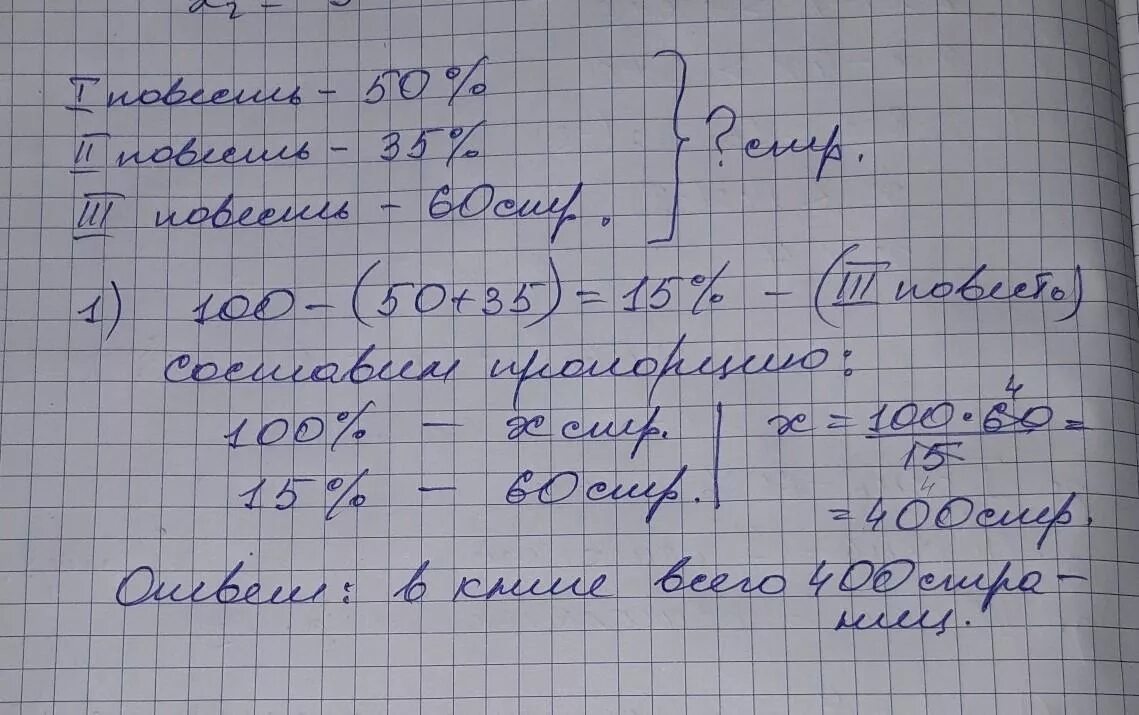 I повесть – 50%
II повесть – 35%
III повесть – 60 стр.
? стр.
1) 100 – (50+35) = 15% – (III повесть)
составим пропорцию:
100% – x стр.
15% – 60 стр.
x = 100 · 60 4 =
15
= 400 стр.
Ответ: в книге всего 400 стра-
ниц.